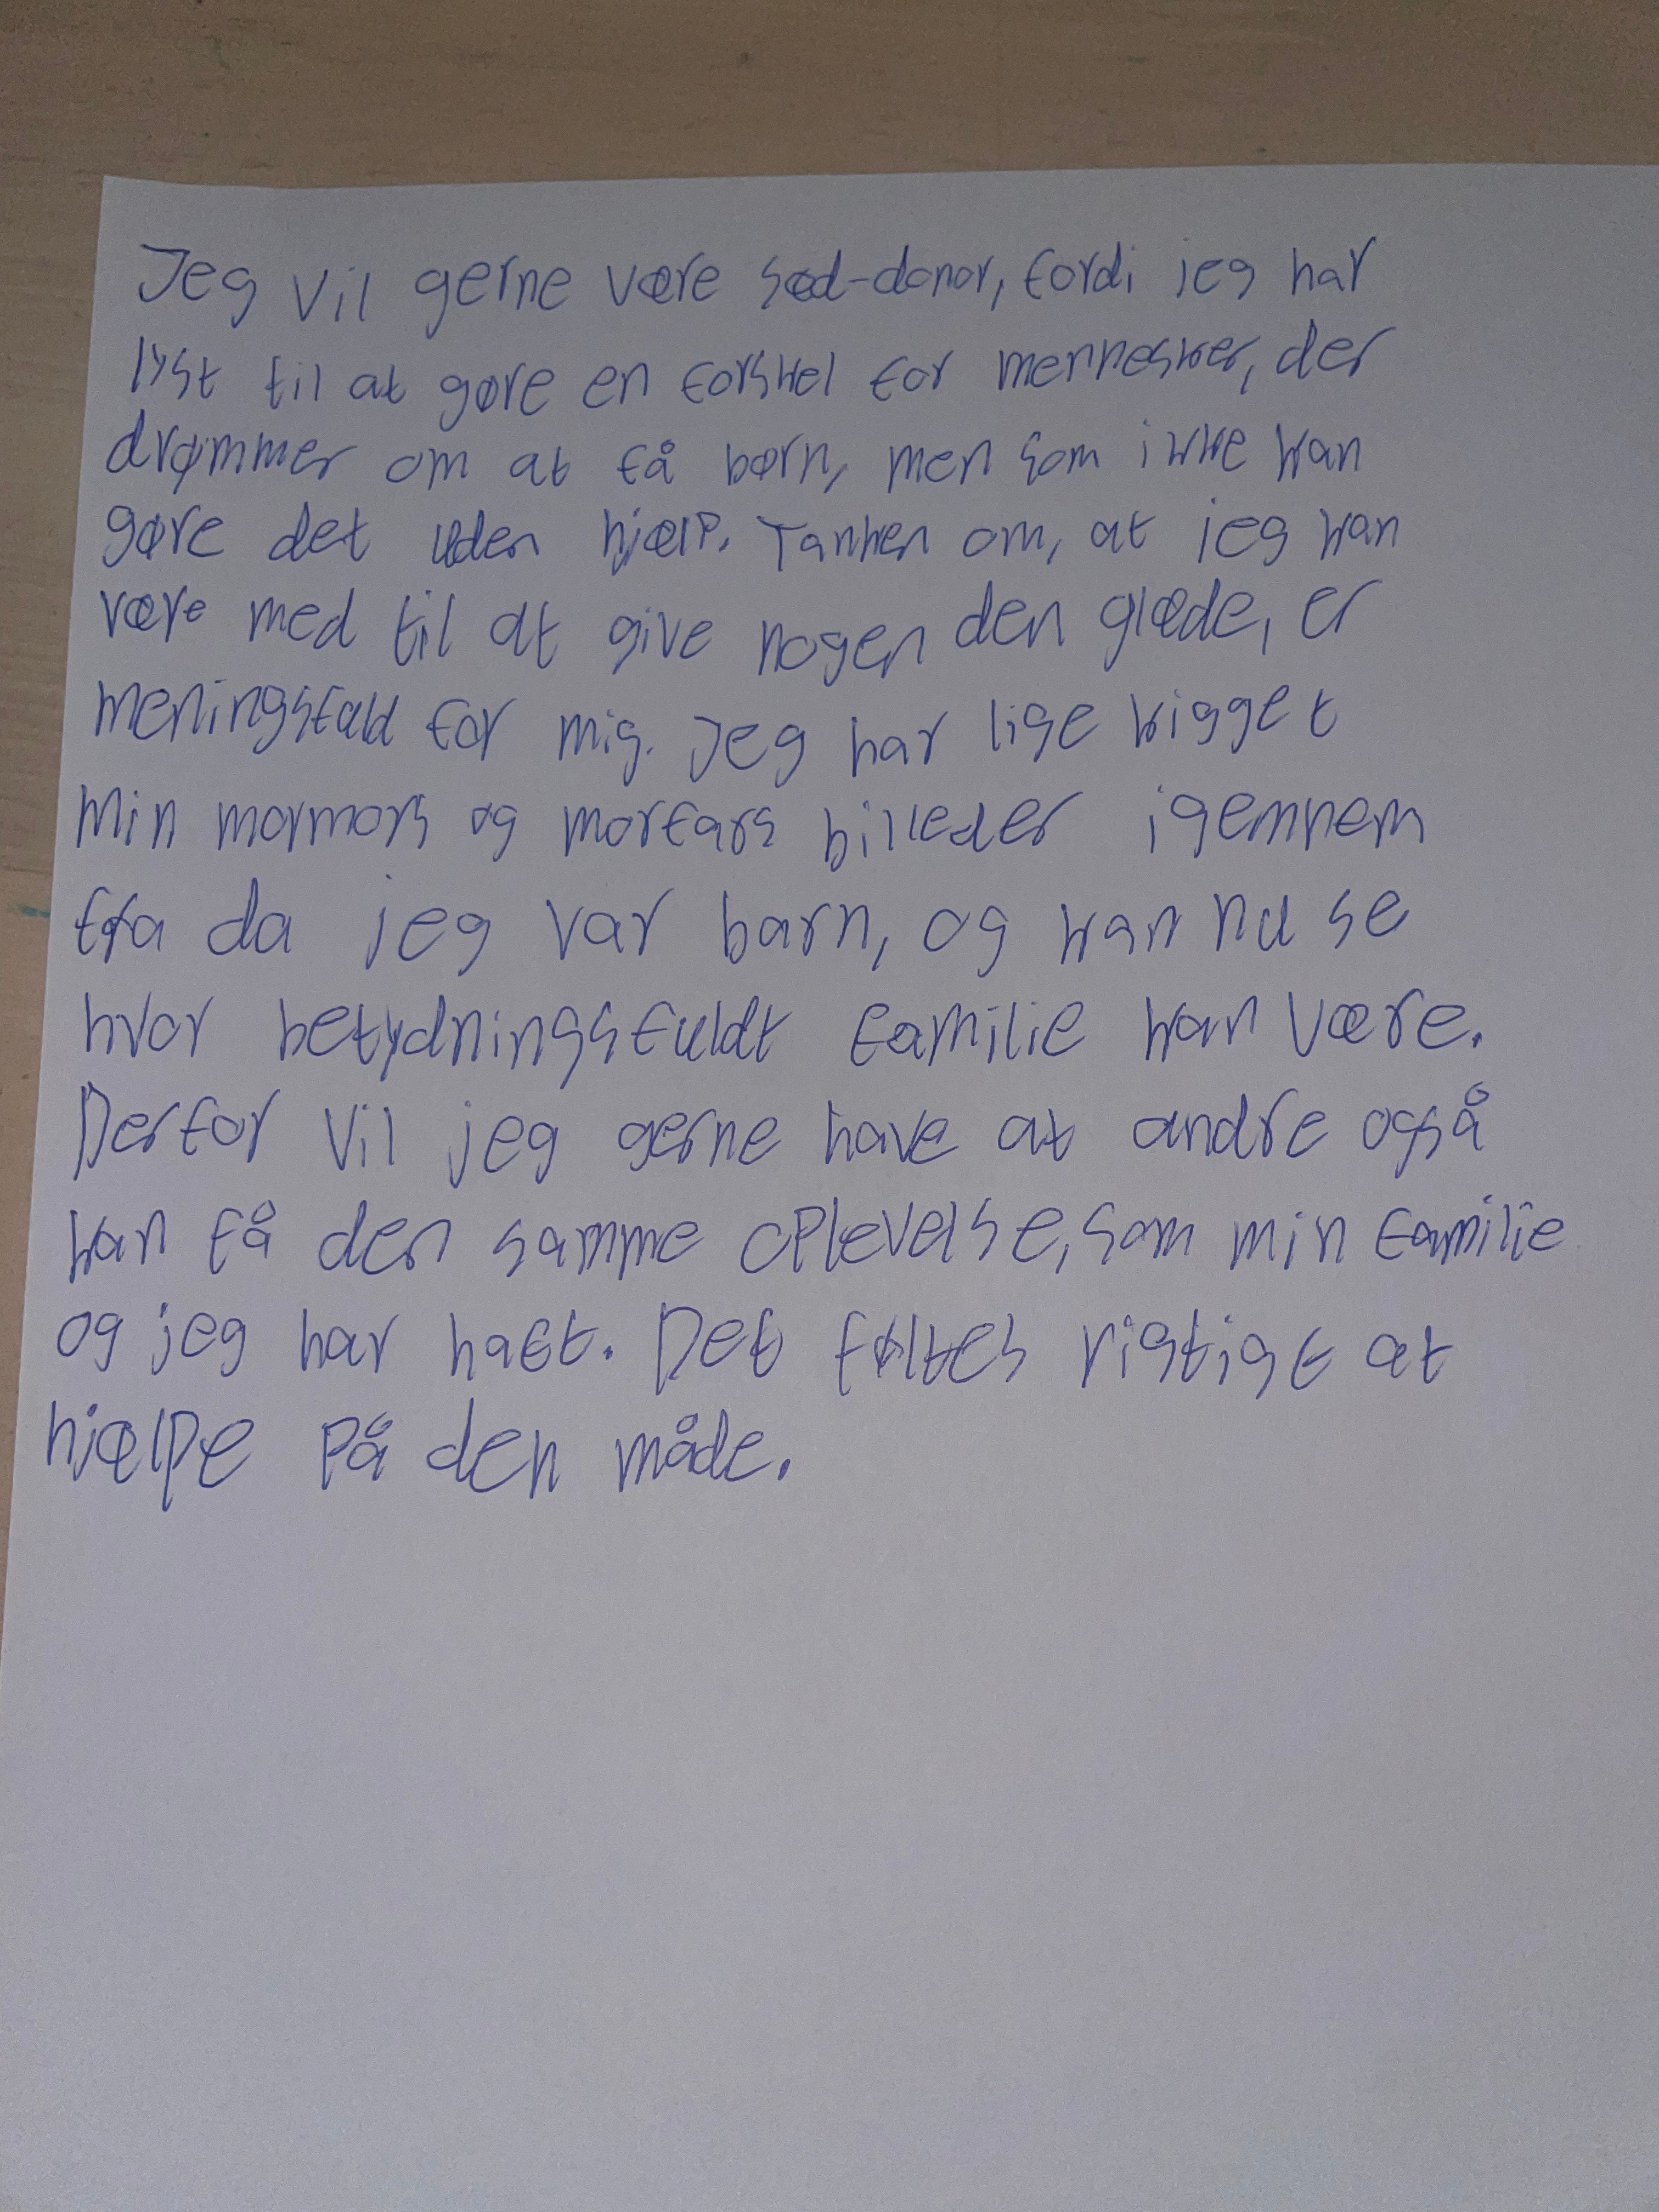 Jeg vil gerne være sæd-donor, fordi jeg har
lyst til at gøre en forskel for mennesker, der
drømmer om at få børn, men som ikke kan
gøre det uden hjælp. Tanken om, at jeg kan
være med til at give nogen den glæde, er
meningsfuld for mig. Jeg har lige kigget
min mormors og morfars billeder igemnem
fra da jeg var barn, og kan nu se
hvor betydningsfuldt familie kan være.
Derfor vil jeg gerne have at andre også
kan få den samme oplevelse, som min familie
og jeg har haft. Det føltes rigtigt at
hjælpe på den måde.